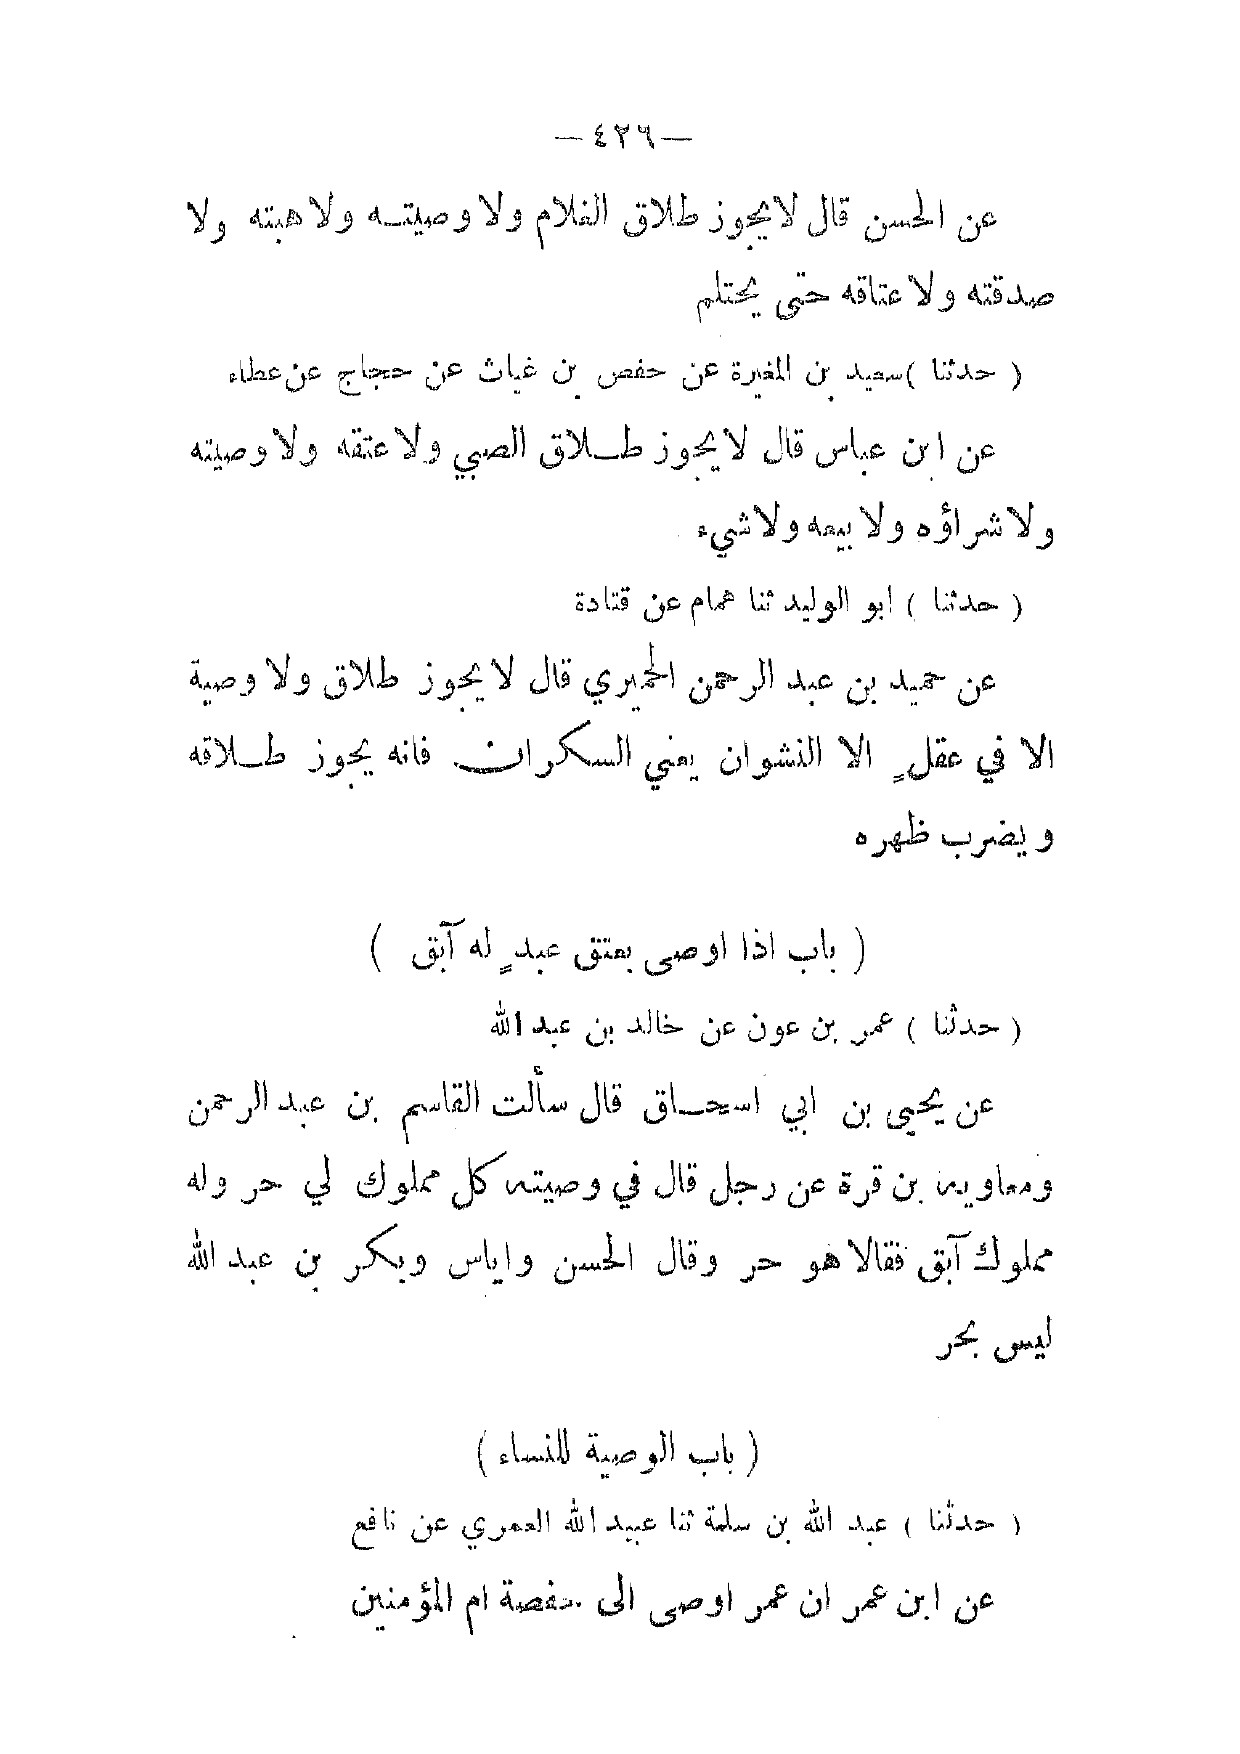 — ٤٢٦ —
عن الحسن قال لايجوز طلاق الغلام ولا وصيته ولا هبته ولا
صدقته ولا عتاقه حتى يحتلم
( حدثنا ) سعيد بن المغيرة عن حفص بن غياث عن حجاج عن عطاء
عن ابن عباس قال لايجوز طلاق الصبي ولا عتقه ولا وصيته
ولا شراؤه ولا بيعه ولا شيء
( حدثنا ) ابو الوليد ثنا همام عن قتادة
عن حميد بن عبد الرحمن الحميري قال لايجوز طلاق ولا وصية
الا في عقلٍ الا النشوان يعني السكران فانه يجوز طلاقه
ويضرب ظهره
( باب اذا اوصى بعتق عبدٍ له آبق )
( حدثنا ) عمر بن عون عن خالد بن عبد الله
عن يحيى بن ابي اسحاق قال سألت القاسم بن عبد الرحمن
ومعاويه بن قرة عن رجل قال في وصيته كل مملوك لي حر وله
مملوك آبق فقالا هو حر وقال الحسن واياس وبكر بن عبد الله
ليس بحر
( باب الوصية للنساء )
( حدثنا ) عبد الله بن سلمة ثنا عبيد الله العمري عن نافع
عن ابن عمر ان عمر اوصى الى حفصة ام المؤمنين